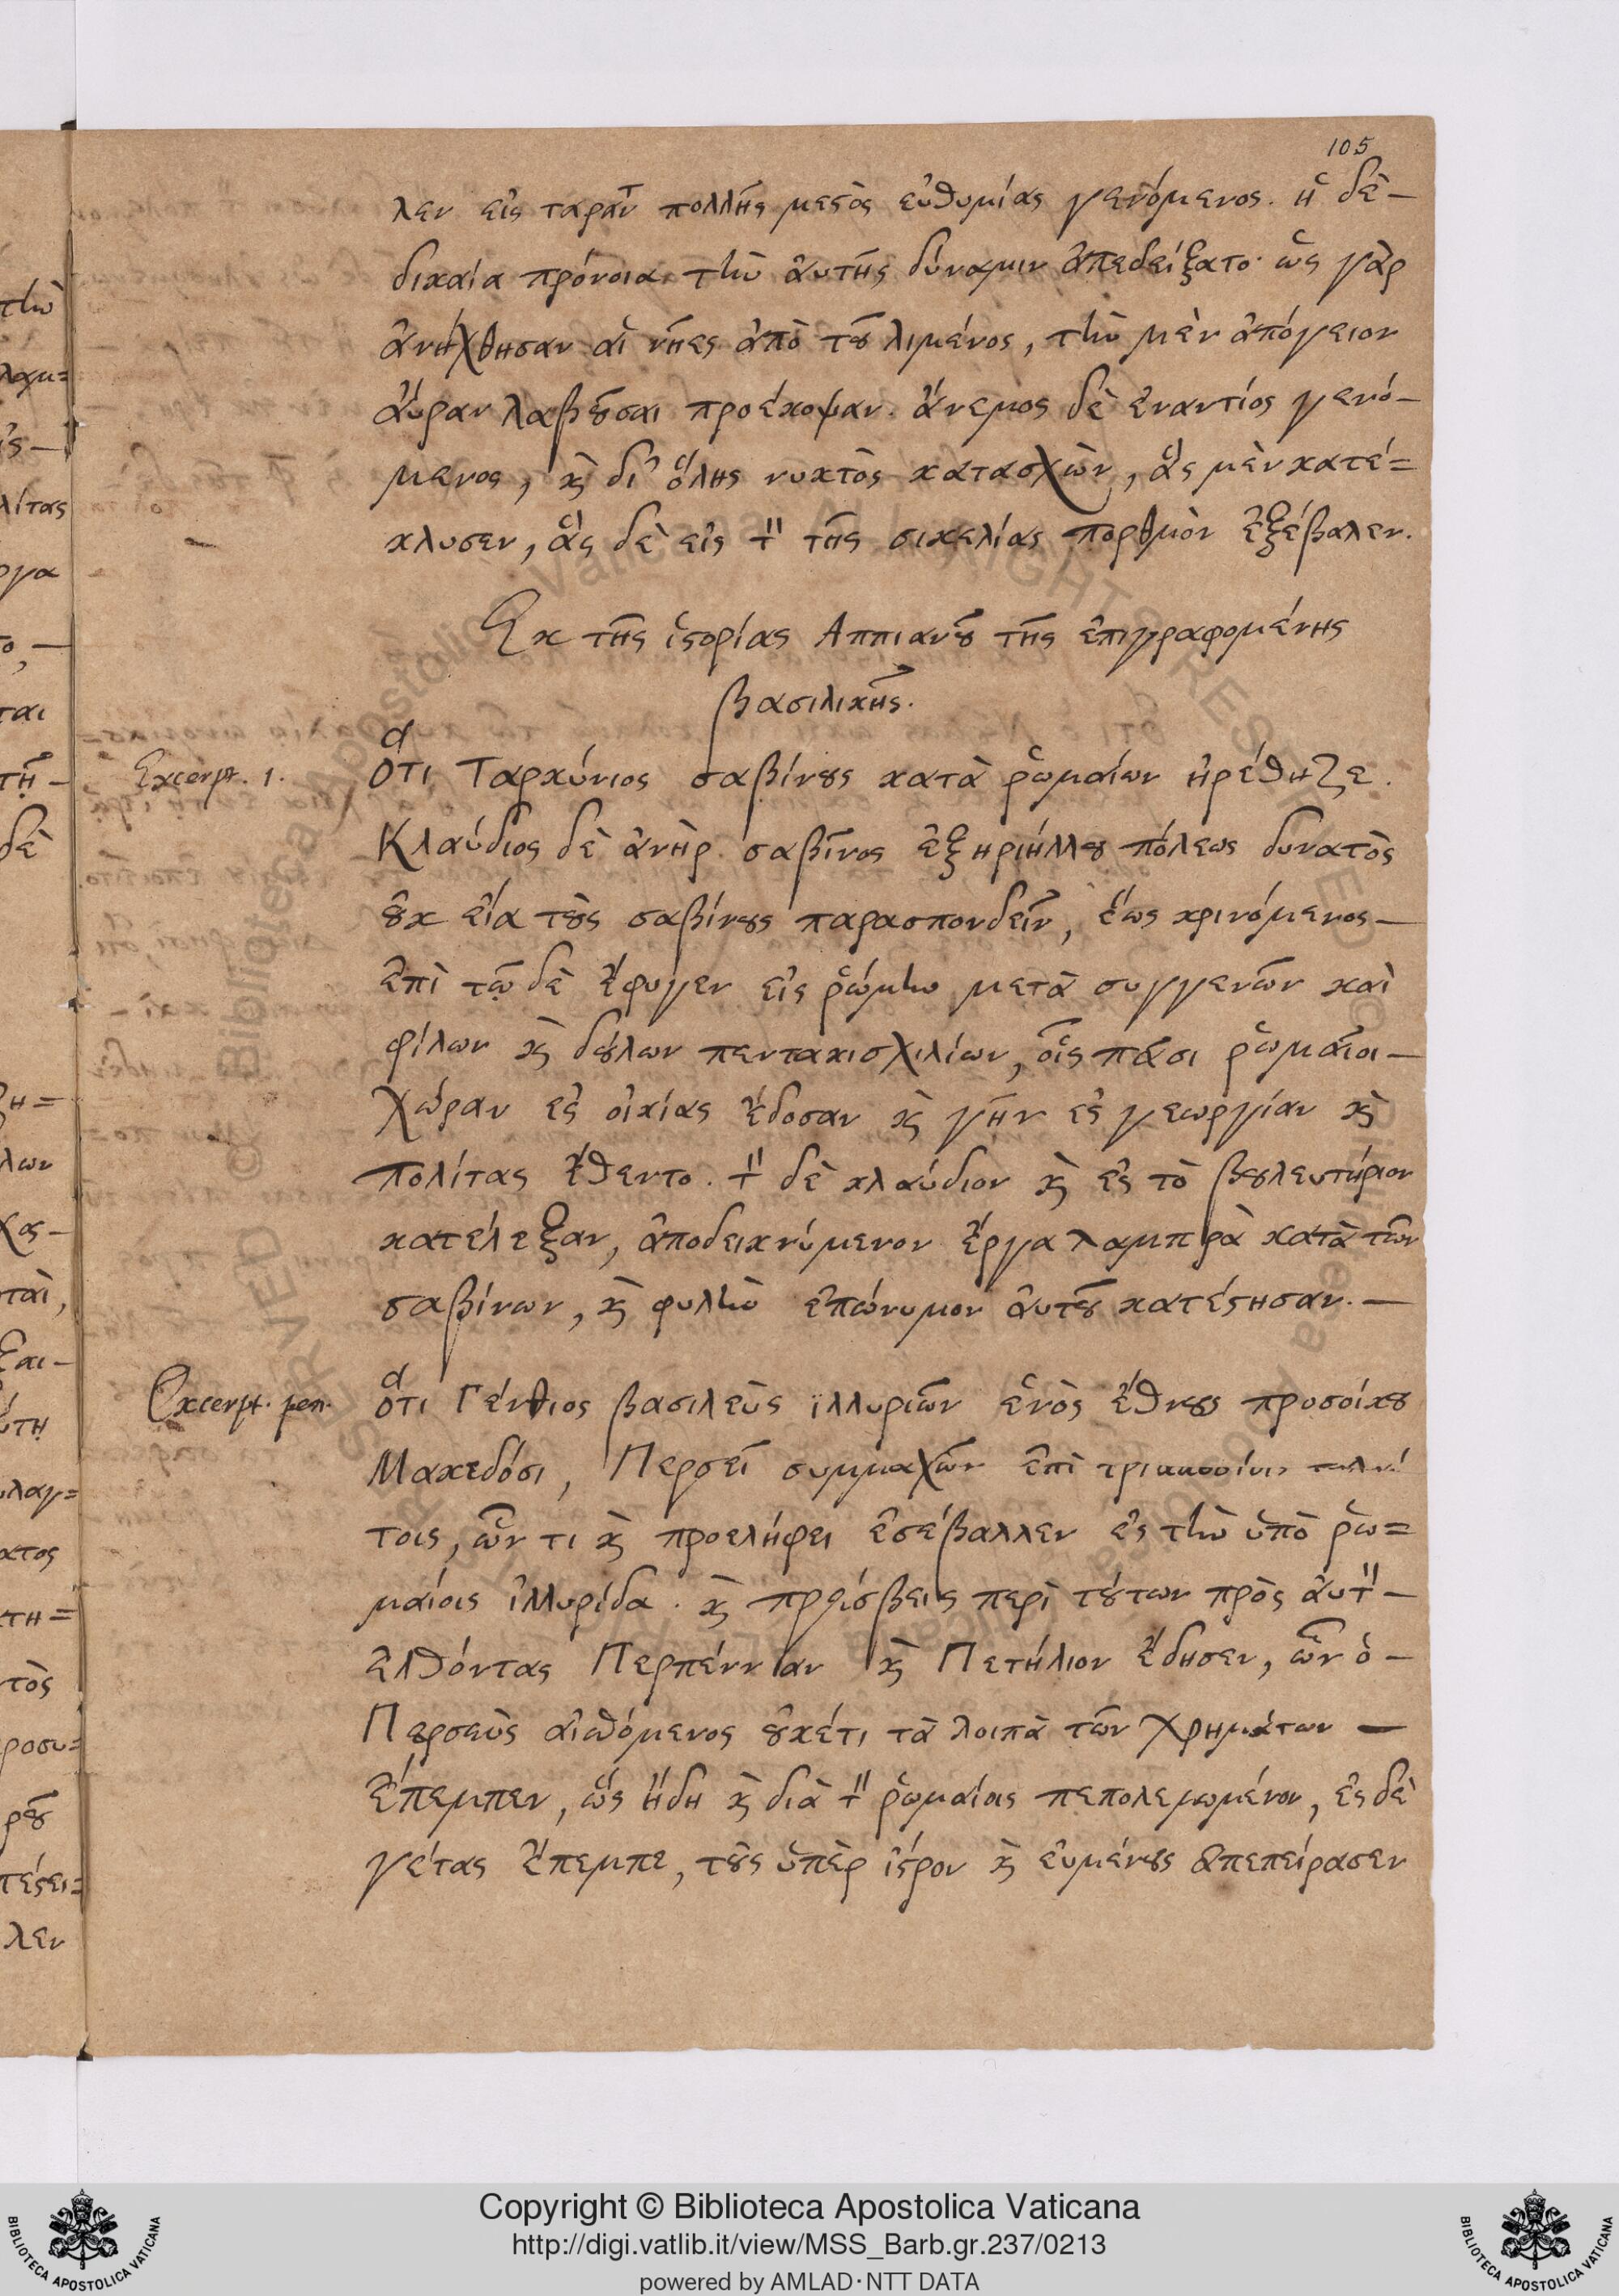 105
λεν εἰς ταρᾶν πολλῆς μεστὸς εὐθυμίας γενόμενος. ἡ δὲ –
δικαία πρόνοια τὴν αὐτῆς δύναμιν ἀπεδείξατο· ὡς γὰρ
ἀνήχθησαν αἱ νῆες ἀπὸ τοῦ λιμένος, τὴν μὲν ἀπόγειον
αὔραν λαβοῦσαι προέκοψαν. ἄνεμος δὲ ἐναντίος γενό–
μενος, κ̀ δι' ὅλης νυκτὸς κατασχὼν, ἃς μὲν κατέ=
κλυσεν, ἃς δὲ εἰς τ̎ τῆς σικελίας πορθμὸν ἐξέβαλεν.
Ἐκ τῆς ἱστορίας Αππιανοῦ τῆς ἐπιγραφομένης
βασιλικῆς.
Excerpt. 1. α ὅτι Ταρκύνιος σαβίνους κατὰ ῥωμαίων ἠρέθηζε.
Κλαύδιος δὲ ἀνὴρ σαβῖνος ἐξ ηριήλλου πόλεως δυνατὸς
οὐκ εἴα τοὺς σαβίνους παρασπονδεῖν, ἕως κρινόμενος –
ἐπὶ τῷδε ἔφυγεν εἰς ῥώμην μετὰ συγγενῶν καὶ
φίλων κ̀ δούλων πεντακισχιλίων, οἷς πᾶσι ῥωμαῖοι –
χώραν ἐς οἰκίας ἔδοσαν κ̀ γῆν ἐς γεωργίαν κ̀
πολίτας ἔθεντο. τ̎ δὲ κλαύδιον κ̀ ἐς τὸ βουλευτήριον
κατέλεξαν, ἀποδεικνύμενον ἔργα λαμπρὰ κατὰ τῶν
σαβίνων, κ̀ φυλὴν ἐπώνυμον αὐτοῦ κατέστησαν. –
Excerpt. pen. α ὅτι Γένθιος βασιλεὺς ἰλλυριῶν ἑνὸς ἔθνους προσοίκου
Μακεδόσι, Περσεῖ συμμαχῶν ἐπὶ τριακοσίοις ταλάν
τοις, ὧν τι κ̀ προειλήφει ἐσέβαλλεν ἐς τὴν ὑπὸ ῥω=
μαίοις ἰλλυρίδα. κ̀ πρέσβεις περὶ τούτων πρὸς αὐτ̎ –
ἐλθόντας Περπένναν κ̀ Πετήλιον ἔδησεν, ὧν ὁ –
Περσεὺς αἰσθόμενος οὐκέτι τὰ λοιπὰ τῶν χρημάτων –
ἔπεμπεν, ὡς ἤδη κ̀ διὰ τ̎ ῥωμαίοις πεπολεμωμένον, ἐς δὲ
γέτας ἔπεμπε, τοὺς ὑπὲρ ἴστρον κ̀ εὐμένους ἀπεπείρασεν
τὴν
λίτας
γα
ται
δὲ
λων
χας –
ται,
ξαι –
τὸς
ροσυ=
ροῦ
λεν
Copyright © Biblioteca Apostolica Vaticana
http://digi.vatlib.it/view/MSS_Barb.gr.237/0213
powered by AMLAD·NTT DATA
BIBLIOTECA APOSTOLICA VATICANA
BIBLIOTECA APOSTOLICA VATICANA